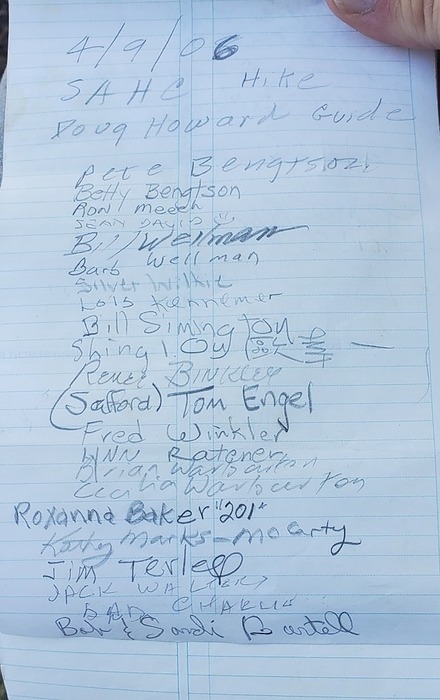 4/9/06
SAHC Hike
Doug Howard Guide
Pete Bengtson
Betty Bengtson
Ron Meech
JEAN DAVIS
Bill Wellman
Barb Wellman
Silver Wilkie
Lois Kennemer
Bill Simington
Shing I. Ou
Renee BINKLEY
(Safford) Tom Engel
Fred Winkler
Ratener
Brian Warburton
Cecilia Warburton
Roxanna Baker "201"
Kathy Marks-McCarty
Jim Terlep
JACK WALTERS
CHARLIE
Bob & Sandi Bartell